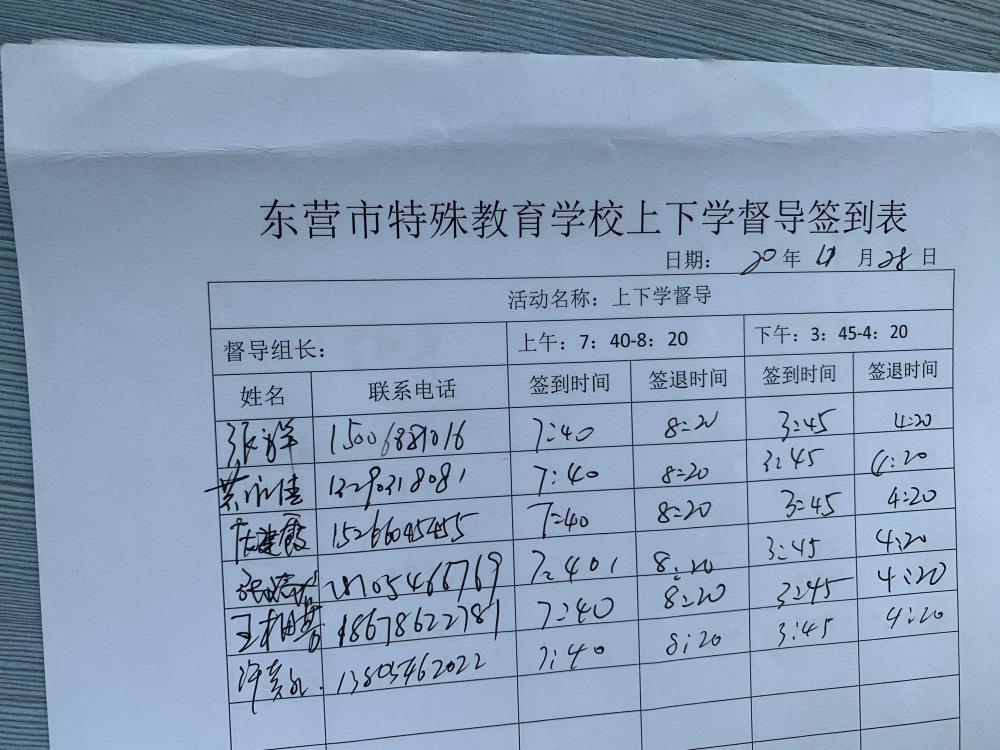 东营市特殊教育学校上下学督导签到表
日期: 20 年 11 月 28 日
活动名称: 上下学督导
督导组长: 上午: 7: 40-8: 20 下午: 3: 45-4: 20
姓名 联系电话 签到时间 签退时间 签到时间 签退时间
7:40 8:20 3:45 4:20
黄永佳 13290318081 7:40 8:20 3:45 4:20
15266045455 7:40 8:20 3:45 4:20
18105466769 7:40 8:20 3:45 4:20
18678622781 7:40 8:20 3:45 4:20
13805462022 7:40 8:20 3:45 4:20